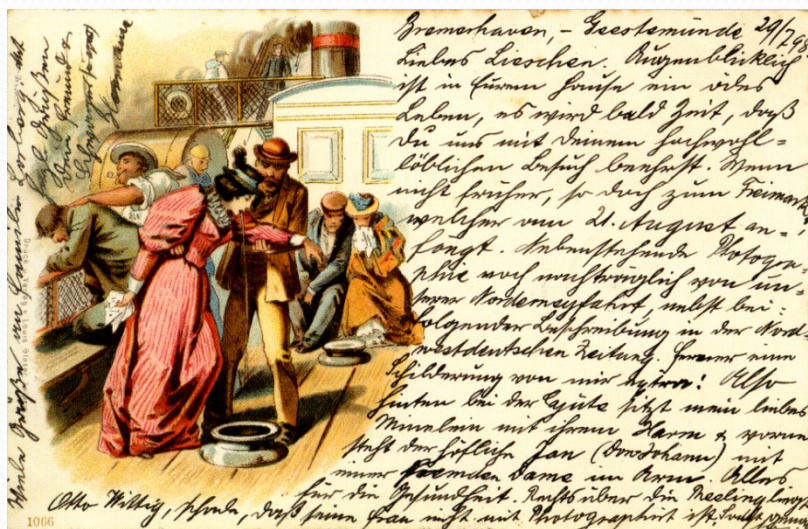 Bremerhaven, - Geestemünde 29/7 98
Liebes Lieschen. Augenblicklich
ist in Eurem Hause ein ödes
Leben, es wird bald Zeit, daß
Du uns mit Deinem hochwohl=
löblichen Besuch beehrst. Wenn
nicht früher, so doch zum Freimarkt
welcher am 21. August an=
fängt. Nebenstehende Photogra=
phie noch nachträglich von un=
serer Norwegfahrt, nebst bei=
folgender Beschreibung in der Nord=
westdeutschen Zeitung. Ferner eine
Schilderung von mir extra! Also
hinten bei der Cajüte sitzt mein liebes
mit ihrem Harm & vorne
steht der höfliche Jan (Johann) mit
einer fremden Dame im Arm. Alles
für die Gesundheit. Rechts über die Reeling
Otto Wittig, schade, daß seine Frau nicht mit Photographirt ist
Viele Grüße an Familie
Grüßen
1066